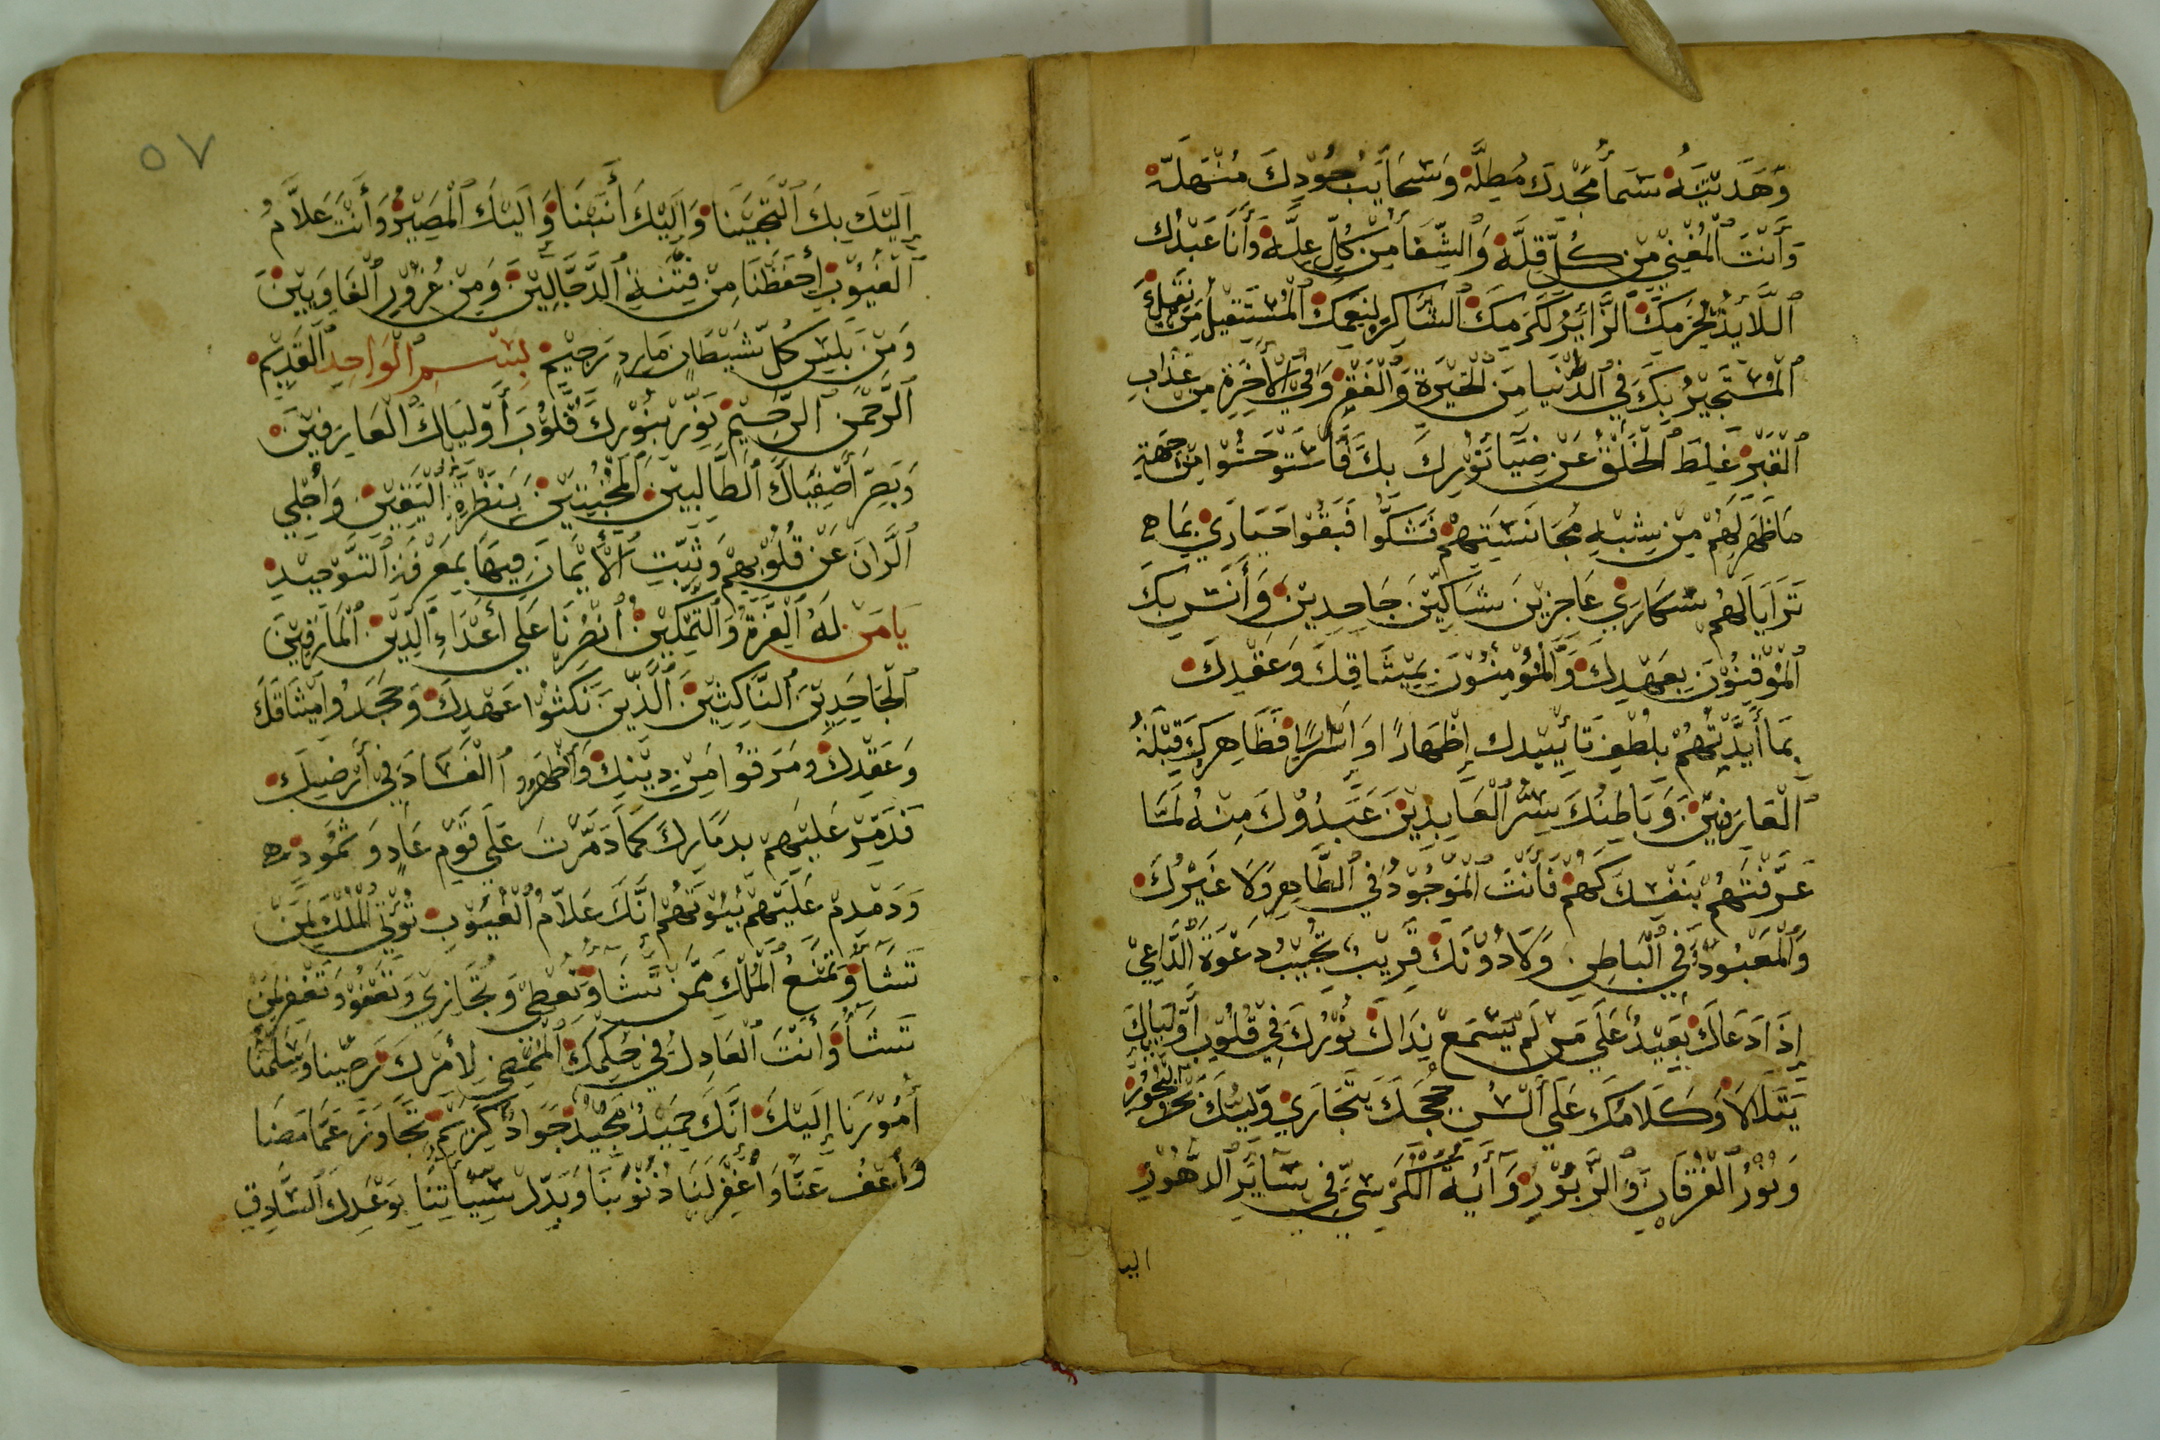 وَهَدَيْتَهُ سَمآ مَجْدِكَ مُطِلَّة وَسَحَايَبُ جُودِكَ مُنْهَلَّة
وَأَنْتَ الْمُغْنِي مِنْ كُلِّ قِلَّة وَالشِّفَآ مِنْ كُلِّ عِلَّة وَأَنَا عَبْدُك
اللَّايِذُ بِحَرَمِكَ الزَّايِرُ لِكَرَمِكَ الشَّاكِرُ لِنِعَمِكَ الْمُسْتَقِيلُ مِنْ نِقَمِكَ
الْمُسْتَجِيرُ بِكَ فِي الدُّنْيَا مِنَ الْحَيْرَةِ وَالْفَقْرِ وَفِي الْأَخِرَةِ مِنْ عَذَابِ
الْقَبْرِ غَلِطَ الْخَلْقُ عَنْ ضِيَآ نُوْرِكَ بِكَ فَاسْتَوْحَشُوا مِنْ جِهَةِ
مَا ظَهَرَ لَهُمْ مِنْ شِبْهِ مُجَانَسَتِهِمْ فَشَكُّوا فَبَقُوا حَيَارَي بِمَا
تَرَايَا لَهُمْ سَكَارَي عَاجِزِينَ شَاكِّينَ جَاحِدِيْنَ وَأَنَسَ بِكَ
الْمُوْقِنُوْنَ بِعَهْدِكَ وَالْمُؤْمِنُوْنَ بِمِيْثَاقِكَ وَعَقْدِكَ
بِمَا أَيَّدْتَهُمْ بِلُطْفِ تَأْيِيْدِك إِظْهَارًا وَإِسْرَارًا فَظَاهِرِكَ قِبْلَةُ
الْعَارِفِيْنَ وَبَاطِنُكَ سِرُّ الْعَابِدِيْنَ عَبَدُوْكَ مِنْهُ لَمَّا
عَرَّفْتَهُمْ بِنَفْسِكَ كَهُمْ فَأَنْتَ الْمَوْجُوْدُ فِي الظَّاهِرِ وَلَا غَيْرُكَ
وَالْمَعْبُوْدُ فِي الْبَاطِنِ وَلَا دُوْنَكَ قَرِيْبٌ تُجِيْبُ دَعْوَةَ الدَّاعِيْ
إِذَا دَعَاكَ بَعِيْدٌ عَلَي مَنْ لَمْ يَسْمَعْ نِدَاكَ نُوْرُكَ فِيْ قُلُوْبِ أَوْلِيَاكَ
يَتَلَالَا وَكَلَامُكَ عَلَي أَلْسُنِ حُجَجِكَ يَتَجَارَي وَلَيْكَ نَحْوَ النُّحُوْرِ
وَنُوْرُ الْفُرْقَانِ وَالزَّبُوْرِ وَأَيَةُ الْكُرْسِيِّ فِي سَايِرِ الدُّهُوْرِ
اليـ
٥٧
إِلَيْكَ بِكَ الْتَجَيْنَا وَإِلَيْكَ أَنَبْنَا وَإِلَيْكَ الْمَصِيْرُ وَأَنْتَ عَلَّامُ
الْغُيُوْبِ احْفَظْنَا مِنْ فِتْنَةِ الدَّجَّالِيْنَ وَمِنْ غُرُوْرِ الْغَاوِيِيْنَ
وَمِنْ بَلِيْسِ كُلِّ شَيْطَانٍ مَارِدٍ رَجِيْمٍ بِسْمِ الْوَاحِدِ الْقَدِيْمِ
الرَّحْمَنِ الرَّحِيْمِ نَوِّرْ بِنُوْرِكَ قُلُوْبَ أَوْلِيَاكَ الْعَارِفِيْنَ
وَبَصِّرْ أَصْفِيَاكَ الطَّالِبِيْنَ الْمُخْبِتِيْنَ بِنَظْرَةِ الْيَقِيْنِ وَاجْلِي
الرَّانَ عَنْ قُلُوْبِهِمْ وَثَبِّتِ الْأَيْمَانَ فِيهَا بِمَعْرِفَةِ التَّوْحِيْدِ
يَا مَنْ لَهُ الْعِزَّةُ وَالتَّمْكِيْنُ انْصُرْنَا عَلَي أَعْدَاءِ الدِّيْنِ الْمَارِقِيْنَ
الْجَاحِدِيْنَ النَّاكِثِيْنَ الَّذِيْنَ نَكَثُوْا عَهْدِكَ وَجَحَدُوا مِيْثَاقَكَ
وَعَقْدِكَ وَمَرَقُوا مِنْ دِيْنِكَ وَأَظْهَرُو الْفَسَادَ فِي أَرْضِكَ
فَدَمِّرْ عَلَيْهِمْ بِدَمَارِكَ كَمَا دَمَّرْتَ عَلَي قَوْمِ عَادٍ وَثَمُوْدٍ
وَدَمْدِمْ عَلَيْهِمْ بُيُوْتَهُمْ إِنَّكَ عَلَّامُ الْغُيُوْبِ تُؤْتِي الْمُلْكَ لِمَنْ
تَشَآ وَتَمْنَعُ الْمُلْكَ مِمَّنْ تَشَآ وَتُعْطِي وَتُجَازِي وَتَعْفُوْ وَتَغْفِرُ لِمَنْ
تَشَآ وَأَنْتَ الْعَادِلُ فِي حُكْمِكَ الْمُمْضِي لِأَمْرِكَ رَضِيْنَا وَسَلَّمْنَا
أُمُوْرَنَا إِلَيْكَ إِنَّكَ حَمِيْدٌ مَجِيْدٌ جَوَادٌ كَرِيْمٌ تَجَاوَزْ عَمَّا مَضَا
وَاعْفُ عَنَّا وَاغْفِرْ لَنَا ذُنُوْبَنَا وَبَدِّلْ سَيِّيآتِنَا بِوَعْدِكَ السَّادِقِ